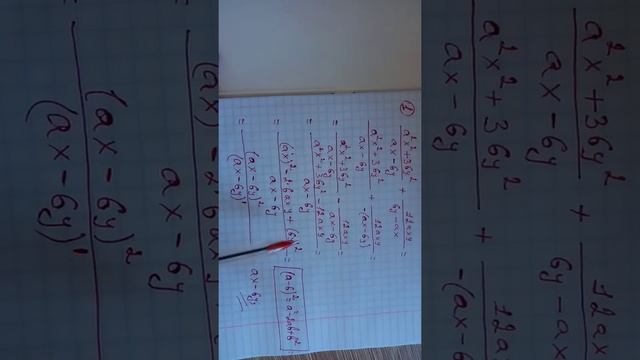 1) (a²x²+36y²)/(ax-6y) + (12axy)/(6y-ax) =
= (a²x²+36y²)/(ax-6y) + (12axy)/(-(ax-6y)) =
= (a²x²+36y²)/(ax-6y) - (12axy)/(ax-6y) =
= (a²x²+36y²-12axy)/(ax-6y) =
= ((ax)²-2·6axy+(6y)²)/(ax-6y) =
= (ax-6y)²/(ax-6y)¹ = ax-6y
(a-b)²=a²-2ab+b²